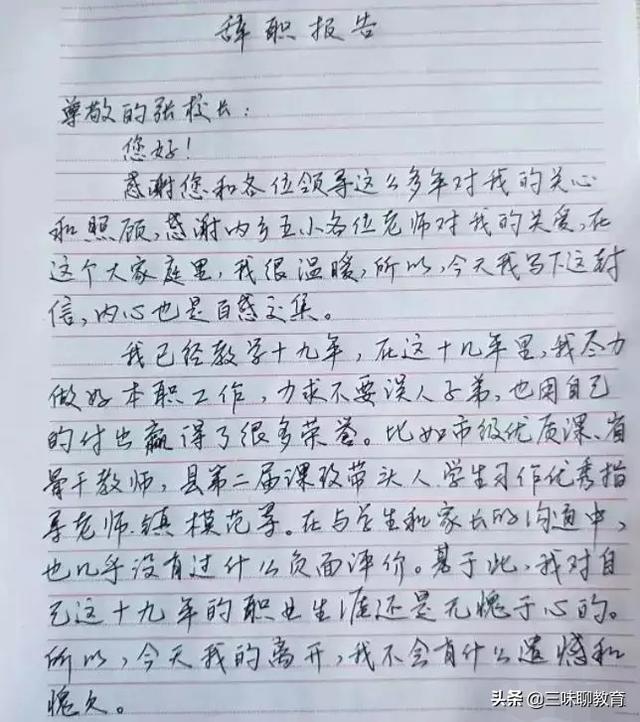 辞职报告
尊敬的张校长:
您好!
感谢您和各位领导这么多年对我的关心
和照顾,感谢内乡五小各位老师对我的关爱,在
这个大家庭里,我很温暖,所以,今天我写下这封
信,内心也是百感交集。
我已经教学十九年,在这十九年里,我尽力
做好本职工作,力求不要误人子弟,也用自己
的付出赢得了很多荣誉。比如市级优质课、省
骨干教师,县第二届课改带头人,学生习作优秀指
导老师.镇模范等。在与学生和家长的沟通中,
也几乎没有过什么负面评价。基于此,我对自
己这十九年的职业生涯还是无愧于心的。
所以,今天我的离开,我不会有什么遗憾和
愧欠。
头条 @三味聊教育